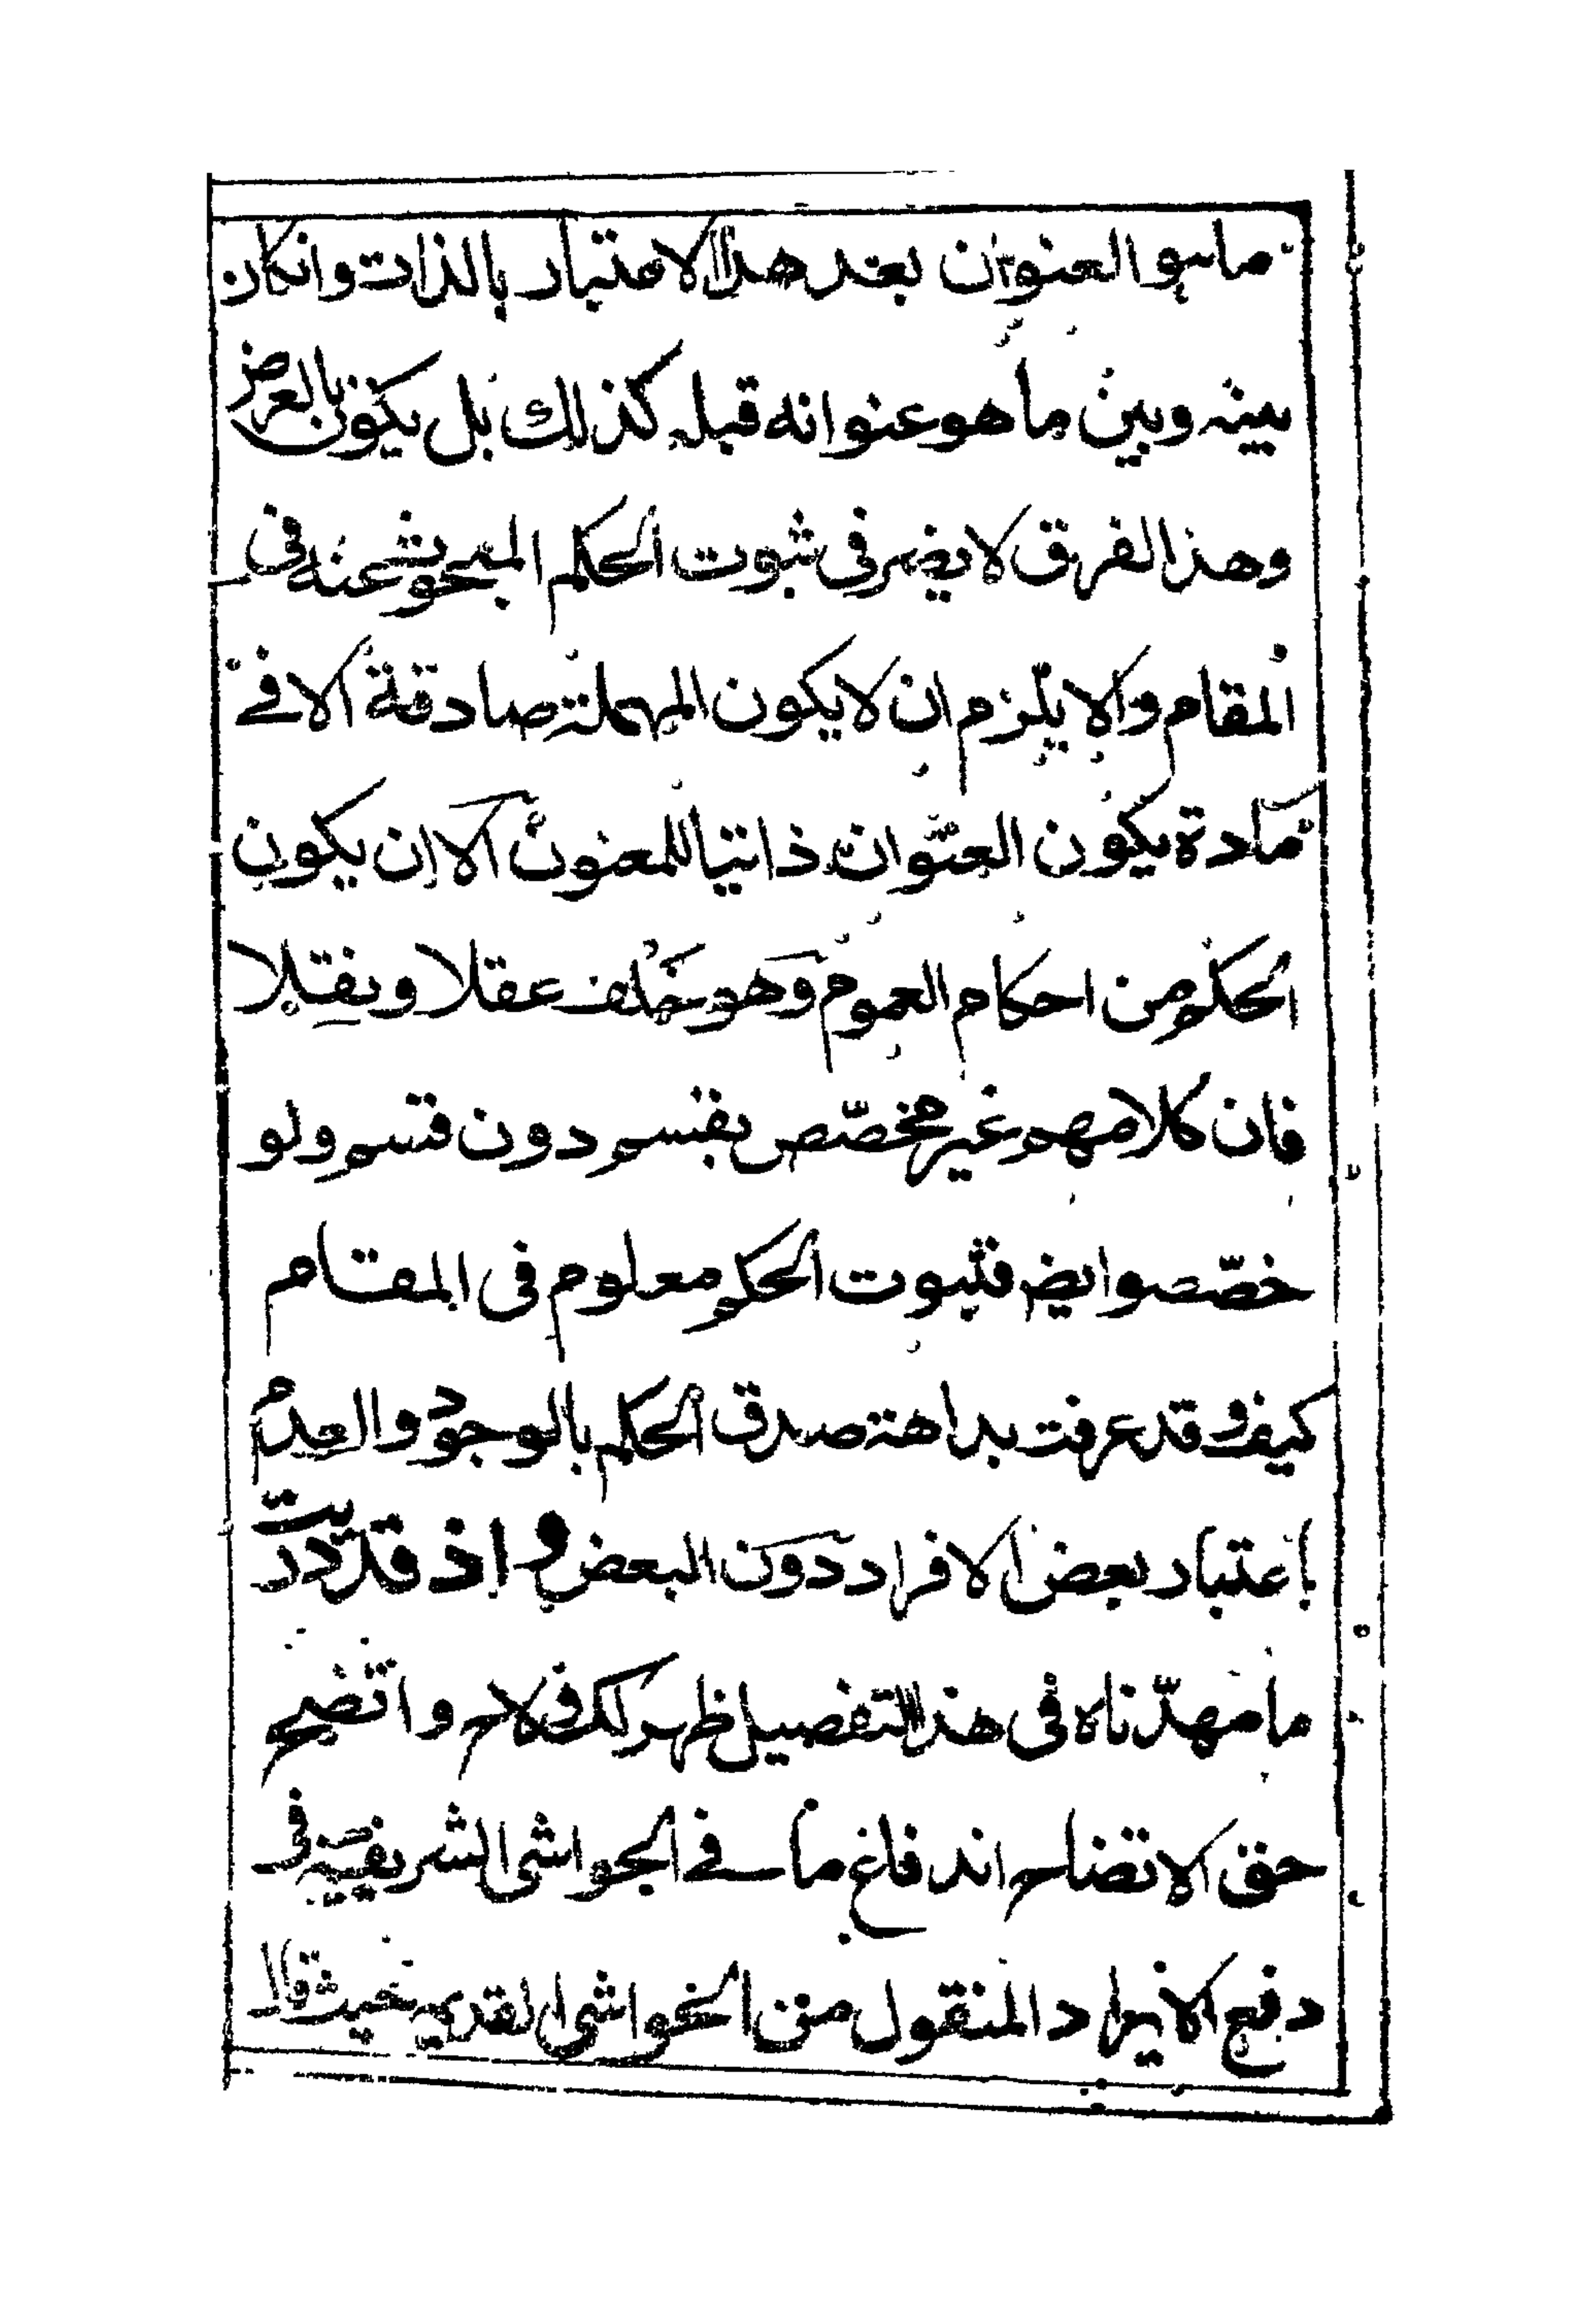 ما هو العنوان بعد هذا الاعتبار بالذات وانكان
بينه وبين ما هو عنوانه قبله كذلك بل يكون بالعرض
وهذا الفرق لا يضر في ثبوت الحكم المبحوث عنه في
المقام والا يلزم ان لا يكون المهملة صادقة الا في
مادة يكون العنوان ذاتيا للمعنون الا ان يكون
الحكم من احكام العموم وهو خلف عقلا ونقلا
فان كلامهم غير مخصّص بقسم دون قسم ولو
خصّصوا ايض فثبوت الحكم معلوم في المقام
كيف وقد عرفت بداهة صدق الحكم بالوجود والعدم
باعتبار بعض الافراد دون البعض واذ قد دريت
ما مهدّناه في هذا التفصيل ظهر لك في كلام واتضح
حق الاتضاح اندفاع ما في الحواشي الشريفية في
دفع الايراد المنقول من الحواشي القديمه حيث قال